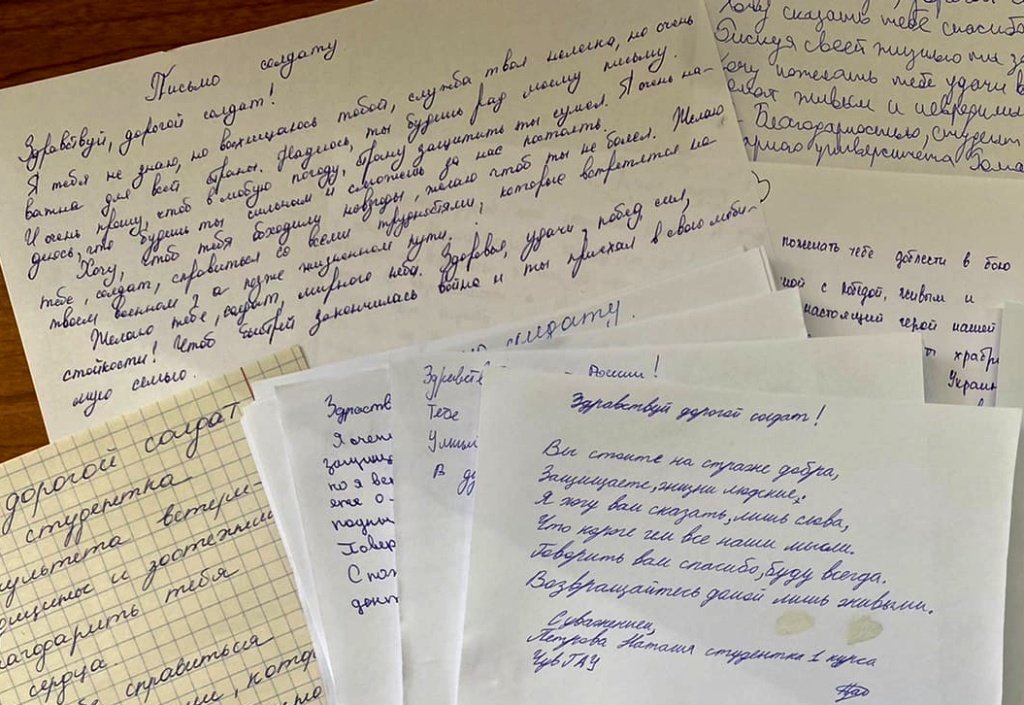 Письмо солдату
Здравствуй, дорогой солдат!
Я тебя не знаю, но восхищаюсь тобой, служба твоя нелегка, но очень
важна для всей страны. Надеюсь, ты будешь рад моему письму.
И очень прошу, чтоб в любую погоду, страну защитить ты сумел. Я очень на-
деюсь, что будешь ты сильным и сможешь за нас постоять.
Хочу, чтоб тебя обходили невзгоды, желаю чтоб ты не болел. Желаю
тебе, солдат, справиться со всеми трудностями, которые встретятся на
твоём военном, а позже жизненном пути.
Желаю тебе, солдат, мирного неба. Здоровья, удачи, побед, сил,
стойкости! Чтоб быстрей закончилась война и ты приехал в свою люби-
мую семью.
Хочу сказать тебе спасибо
Рискуя своей жизнью ты
хочу пожелать тебе удачи в
живым и невредимым
Благодарностью, студент
университета
пожелать тебе доблести в бою
с победой, живым и
настоящий герой нашей
храбр
Украин
дорогой солдат
студентка
культета ветери-
и зоотехнии
лагодарить тебя
сердца.
справиться
солдату.
Здравств
Я очень
защищ
Повер
Здравств
России!
Тебе
В
Здравствуй дорогой солдат!
Вы стоите на страже добра,
Защищаете, жизни людские,
Я хочу вам сказать, лишь слова,
Что короче чем все наши мысли.
Говорить вам спасибо, буду всегда.
Возвращайтесь домой лишь живыми.
С уважением,
Петрова Наталия студентка 1 курса
ЧувГАУ